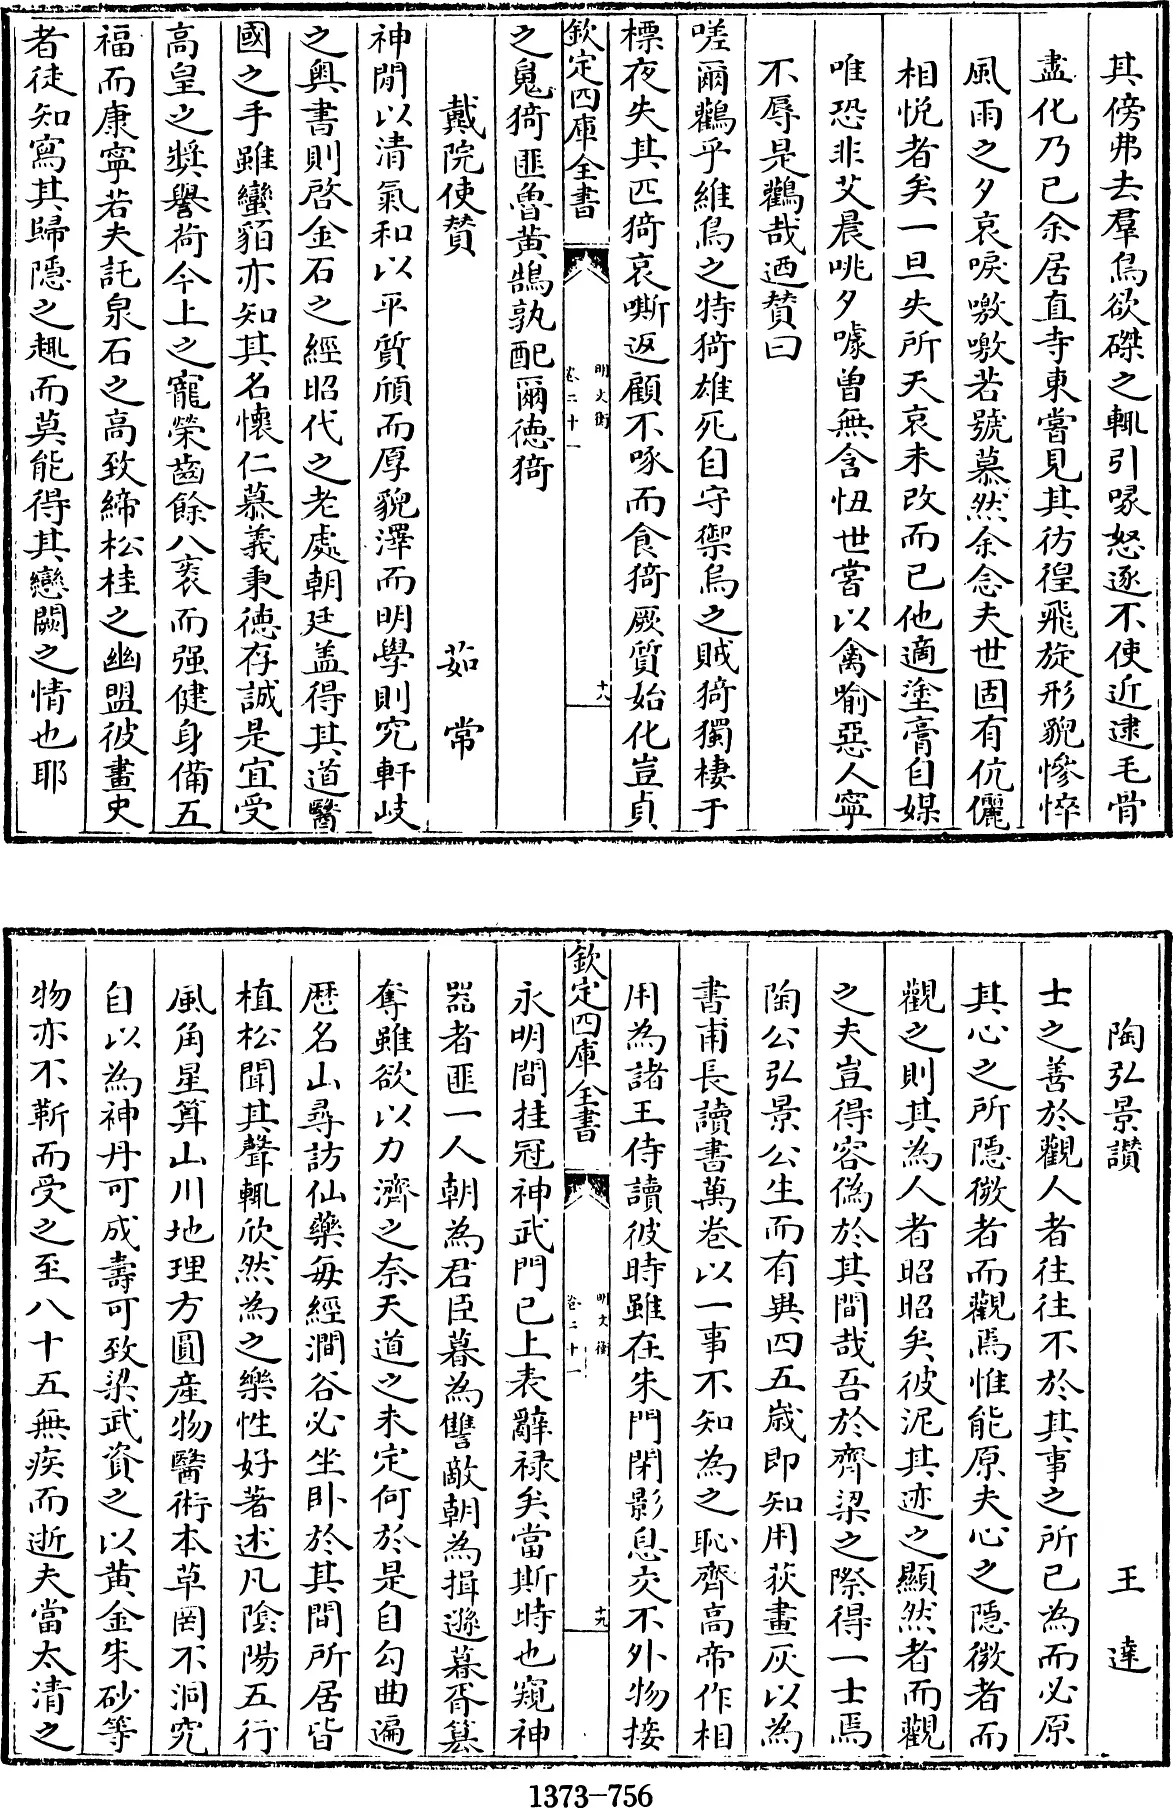 其傍弗去羣烏欲磔之輒引喙怒逐不使近逮毛骨
盡化乃已余居直寺東嘗見其彷徨飛旋形貌慘悴
風雨之夕哀唳噭噭若號慕然余念夫世固有伉儷
相悦者矣一旦失所天哀未改而已他適塗膏自媒
唯恐非艾晨咷夕噱曾無含忸世嘗以禽喻惡人寧
不辱是鸛哉迺賛曰
嗟爾鸛乎維鳥之特猗雄死自守禦烏之賊猗獨棲于
標夜失其匹猗哀嘶返顧不啄而食猗厥質始化豈貞
欽定四庫全書
明文衡
卷二十一
十八
之鬼猗匪魯黄鵠孰配爾徳猗
戴院使賛
茹常
神閒以清氣和以平質頎而厚貌澤而明學則究軒岐
之奥書則啓金石之經昭代之老處朝廷盖得其道醫
國之手雖蠻貊亦知其名懷仁慕義秉徳存誠是宜受
高皇之奬譽荷今上之寵榮齒餘八袠而强健身備五
福而康寧若夫託泉石之高致締松桂之幽盟彼畫史
者徒知寫其歸隱之趣而莫能得其戀闕之情也耶
陶弘景讃
王達
士之善於觀人者往往不於其事之所已為而必原
其心之所隱微者而觀焉惟能原夫心之隱微者而
觀之則其為人者昭昭矣彼泥其迹之顯然者而觀
之夫豈得容偽於其間哉吾於齊梁之際得一士焉
陶公弘景公生而有異四五歳即知用荻畫灰以為
書甫長讀書萬卷以一事不知為之恥齊高帝作相
用為諸王侍讀彼時雖在朱門閉影息交不外物接
欽定四庫全書
明文衡
卷二十一
十九
永明間挂冠神武門已上表辭禄矣當斯時也窺神
器者匪一人朝為君臣暮為讐敵朝為揖遜暮胥篡
奪雖欲以力濟之奈天道之未定何於是自勾曲遍
歴名山尋訪仙藥毎經澗谷必坐卧於其間所居皆
植松聞其聲輒欣然為之樂性好著述凡隂陽五行
風角星算山川地理方圓産物醫術本草罔不洞究
自以為神丹可成壽可致梁武資之以黄金朱砂等
物亦不靳而受之至八十五無疾而逝夫當太清之
1373-756